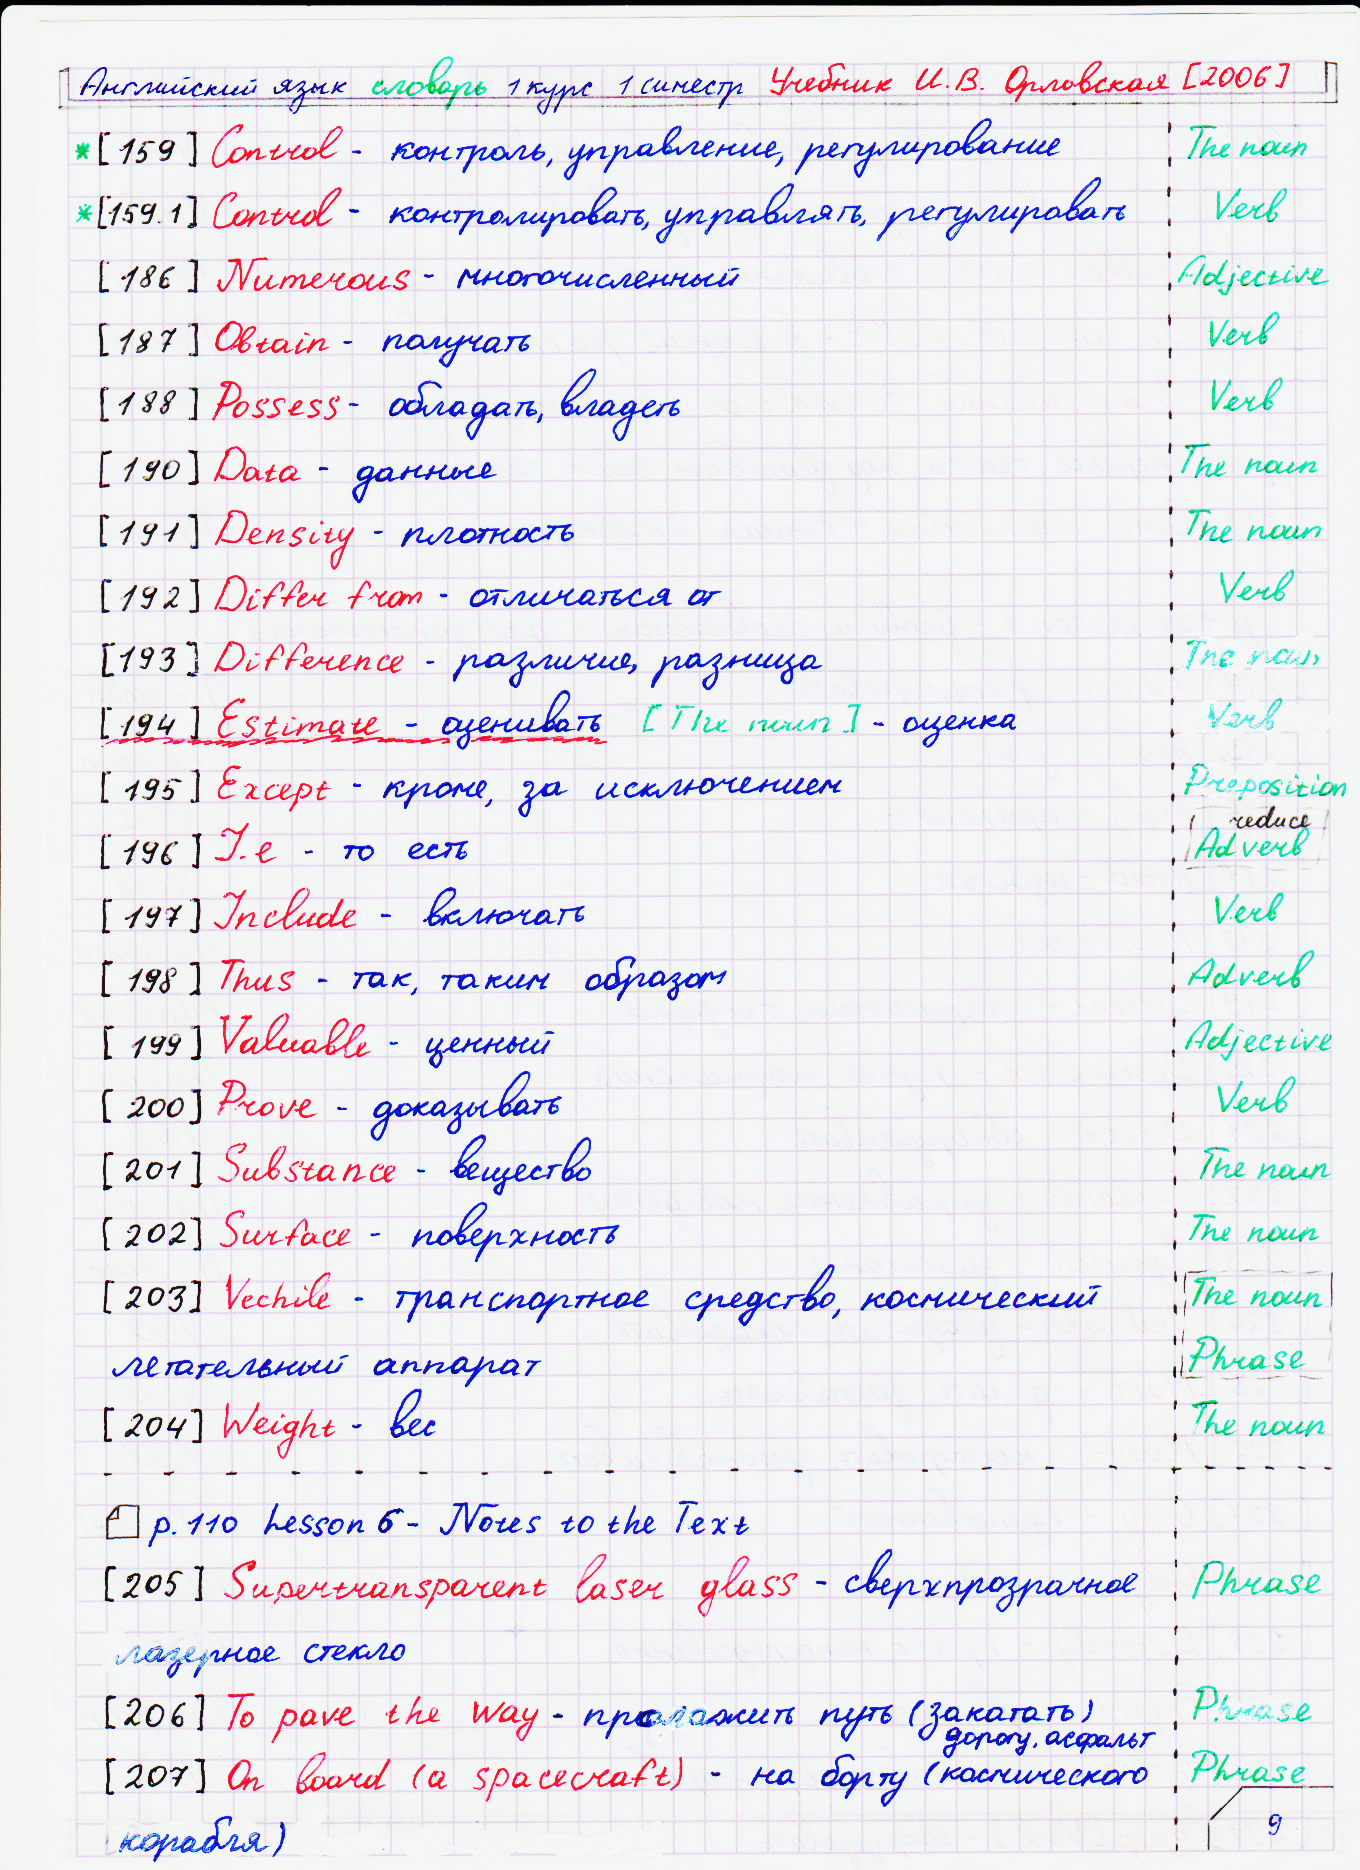 Английский язык словарь 1 курс 1 симестр Учебник И.В. Орловская [2006]
*[159] Control - контроль, управление, регулирование The noun
*[159.1] Control - контролировать, управлять, регулировать Verb
[186] Numerous - многочисленный Adjective
[187] Obtain - получать Verb
[188] Possess - обладать, владеть Verb
[190] Data - данные The noun
[191] Density - плотность The noun
[192] Differ from - отличаться от Verb
[193] Difference - различие, разница The noun
[194] Estimate - оценивать [The noun] - оценка Verb
[195] Except - кроме, за исключением Preposition
reduce
[196] I.e - то есть Adverb
[197] Include - включать Verb
[198] Thus - так, таким образом Adverb
[199] Valuable - ценный Adjective
[200] Prove - доказывать Verb
[201] Substance - вещество The noun
[202] Surface - поверхность The noun
[203] Vechile - транспортное средство, космический The noun
летательный аппарат Phrase
[204] Weight - вес The noun
p.110 Lesson 6 - Notes to the Text
[205] Supertransparent laser glass - сверхпрозрачное Phrase
лазерное стекло
[206] To pave the way - проложить путь (закатать) Phrase
дорогу, асфальт
[207] On board (a spacecraft) - на борту (космического Phrase
корабля)
9